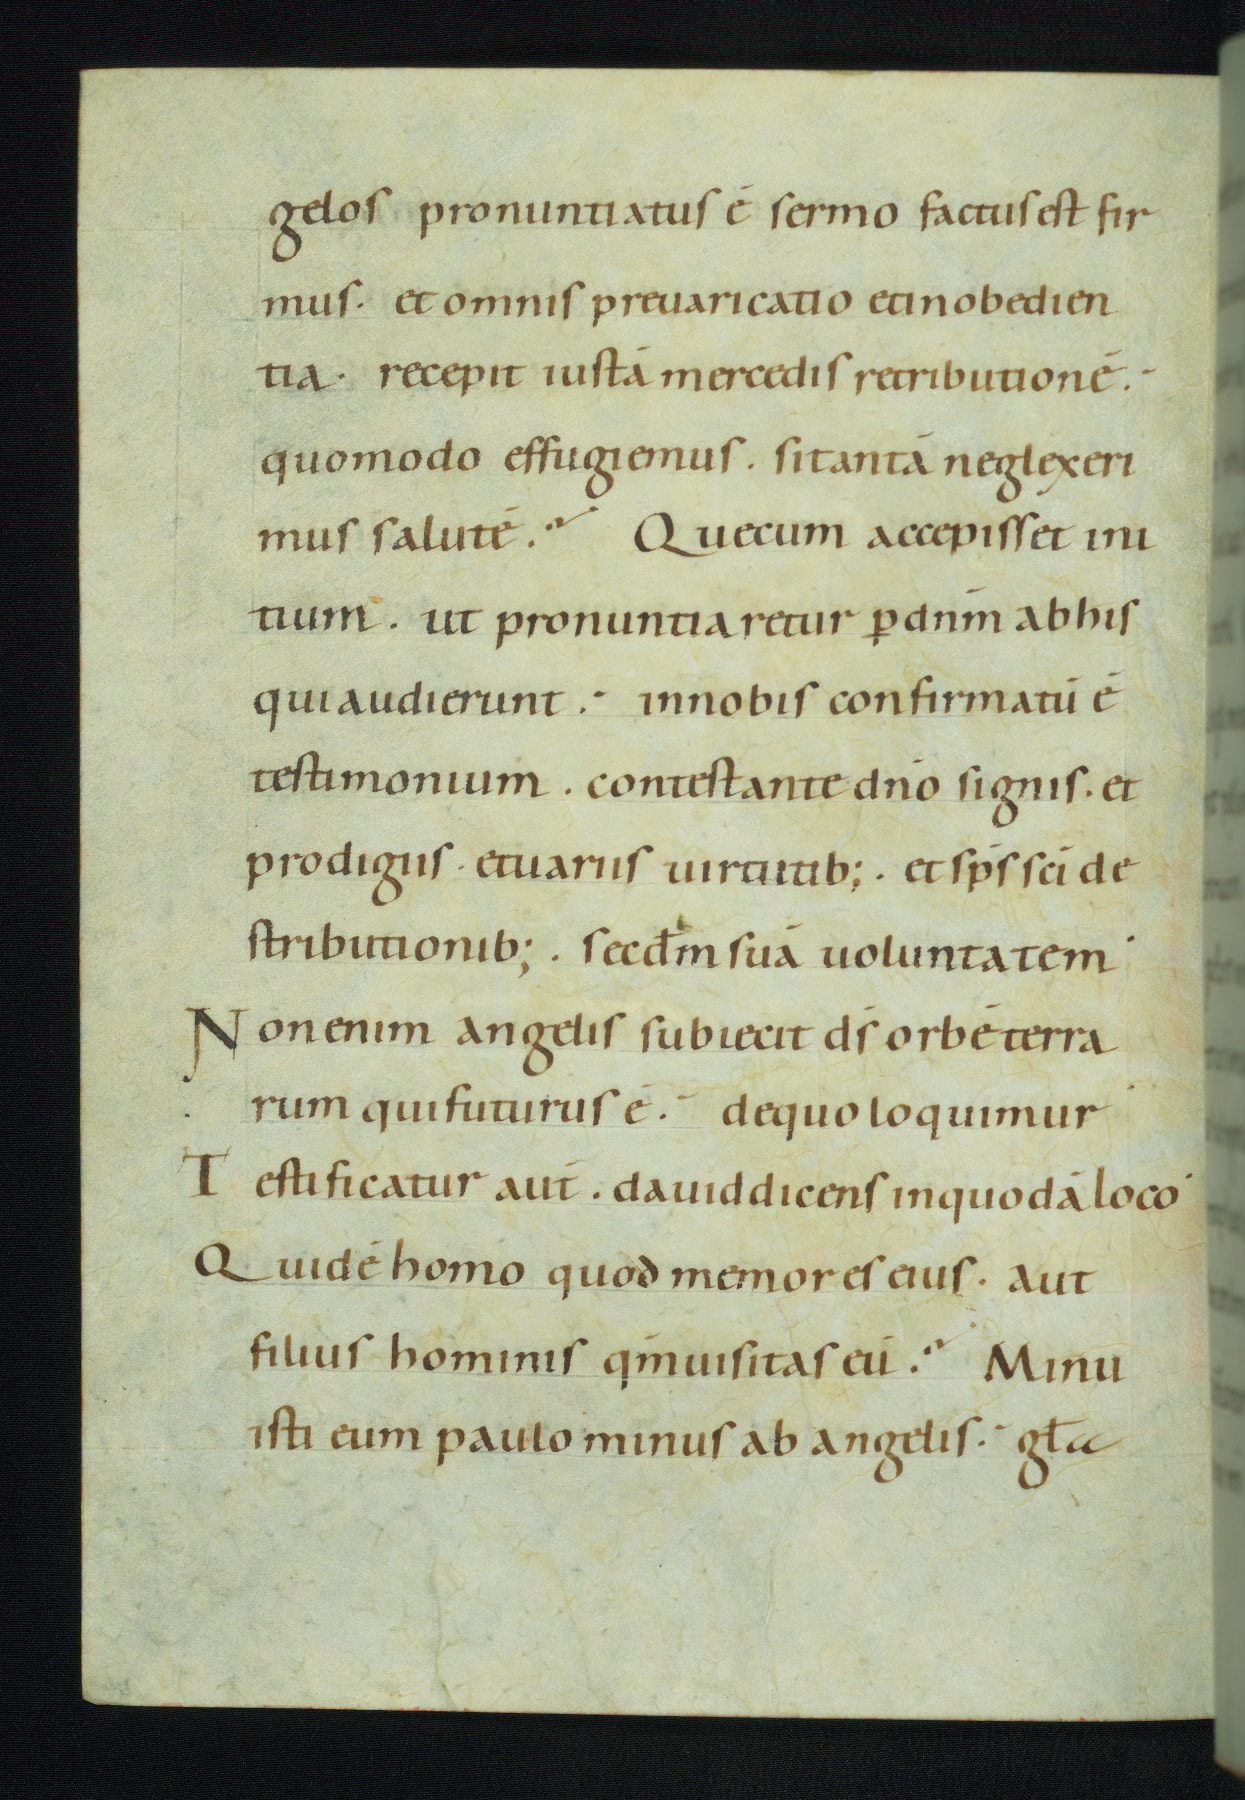 gelos pronuntiatus ē sermo factus est fir
mus. et omnis preuaricatio et inobedien
tia. recepit iustā mercedis retributionē.
quomodo effugiemus. si tantā neglexeri
mus salutē. Que cum accepisset ini
tium. ut pronuntiaretur ꝑ dnm̄ ab his
qui audierunt. in nobis confirmatū ē
testimonium. contestante dnō signis. et
prodigiis. et uariis uirtutib;. et sps̄ scī de
stributionib;. secdm̄ suā uoluntatem
Non enim angelis subiecit ds̄ orbē terra
rum qui futurus ē. de quo loquimur
Testificatur aut̄. dauid dicens in quodā loco
Quid ē homo quod memor es eius. aut
filius hominis qm̄ uisitas eū. Minu
isti eum paulo minus ab angelis. gła